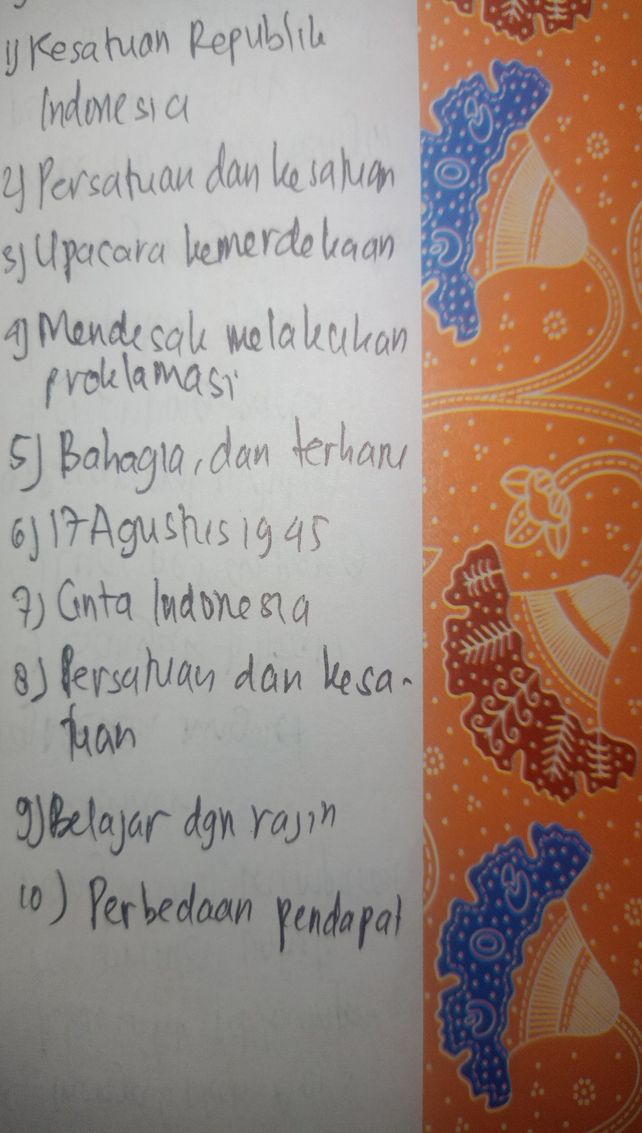 1) Kesatuan Republik
Indonesia
2) Persatuan dan kesatuan
3) Upacara kemerdekaan
4) Mendesak melakukan
proklamasi
5) Bahagia, dan terharu
6) 17 Agustus 1945
7) Cinta Indonesia
8) Persatuan dan kesa-
tuan
9) Belajar dgn rajin
10) Perbedaan pendapat